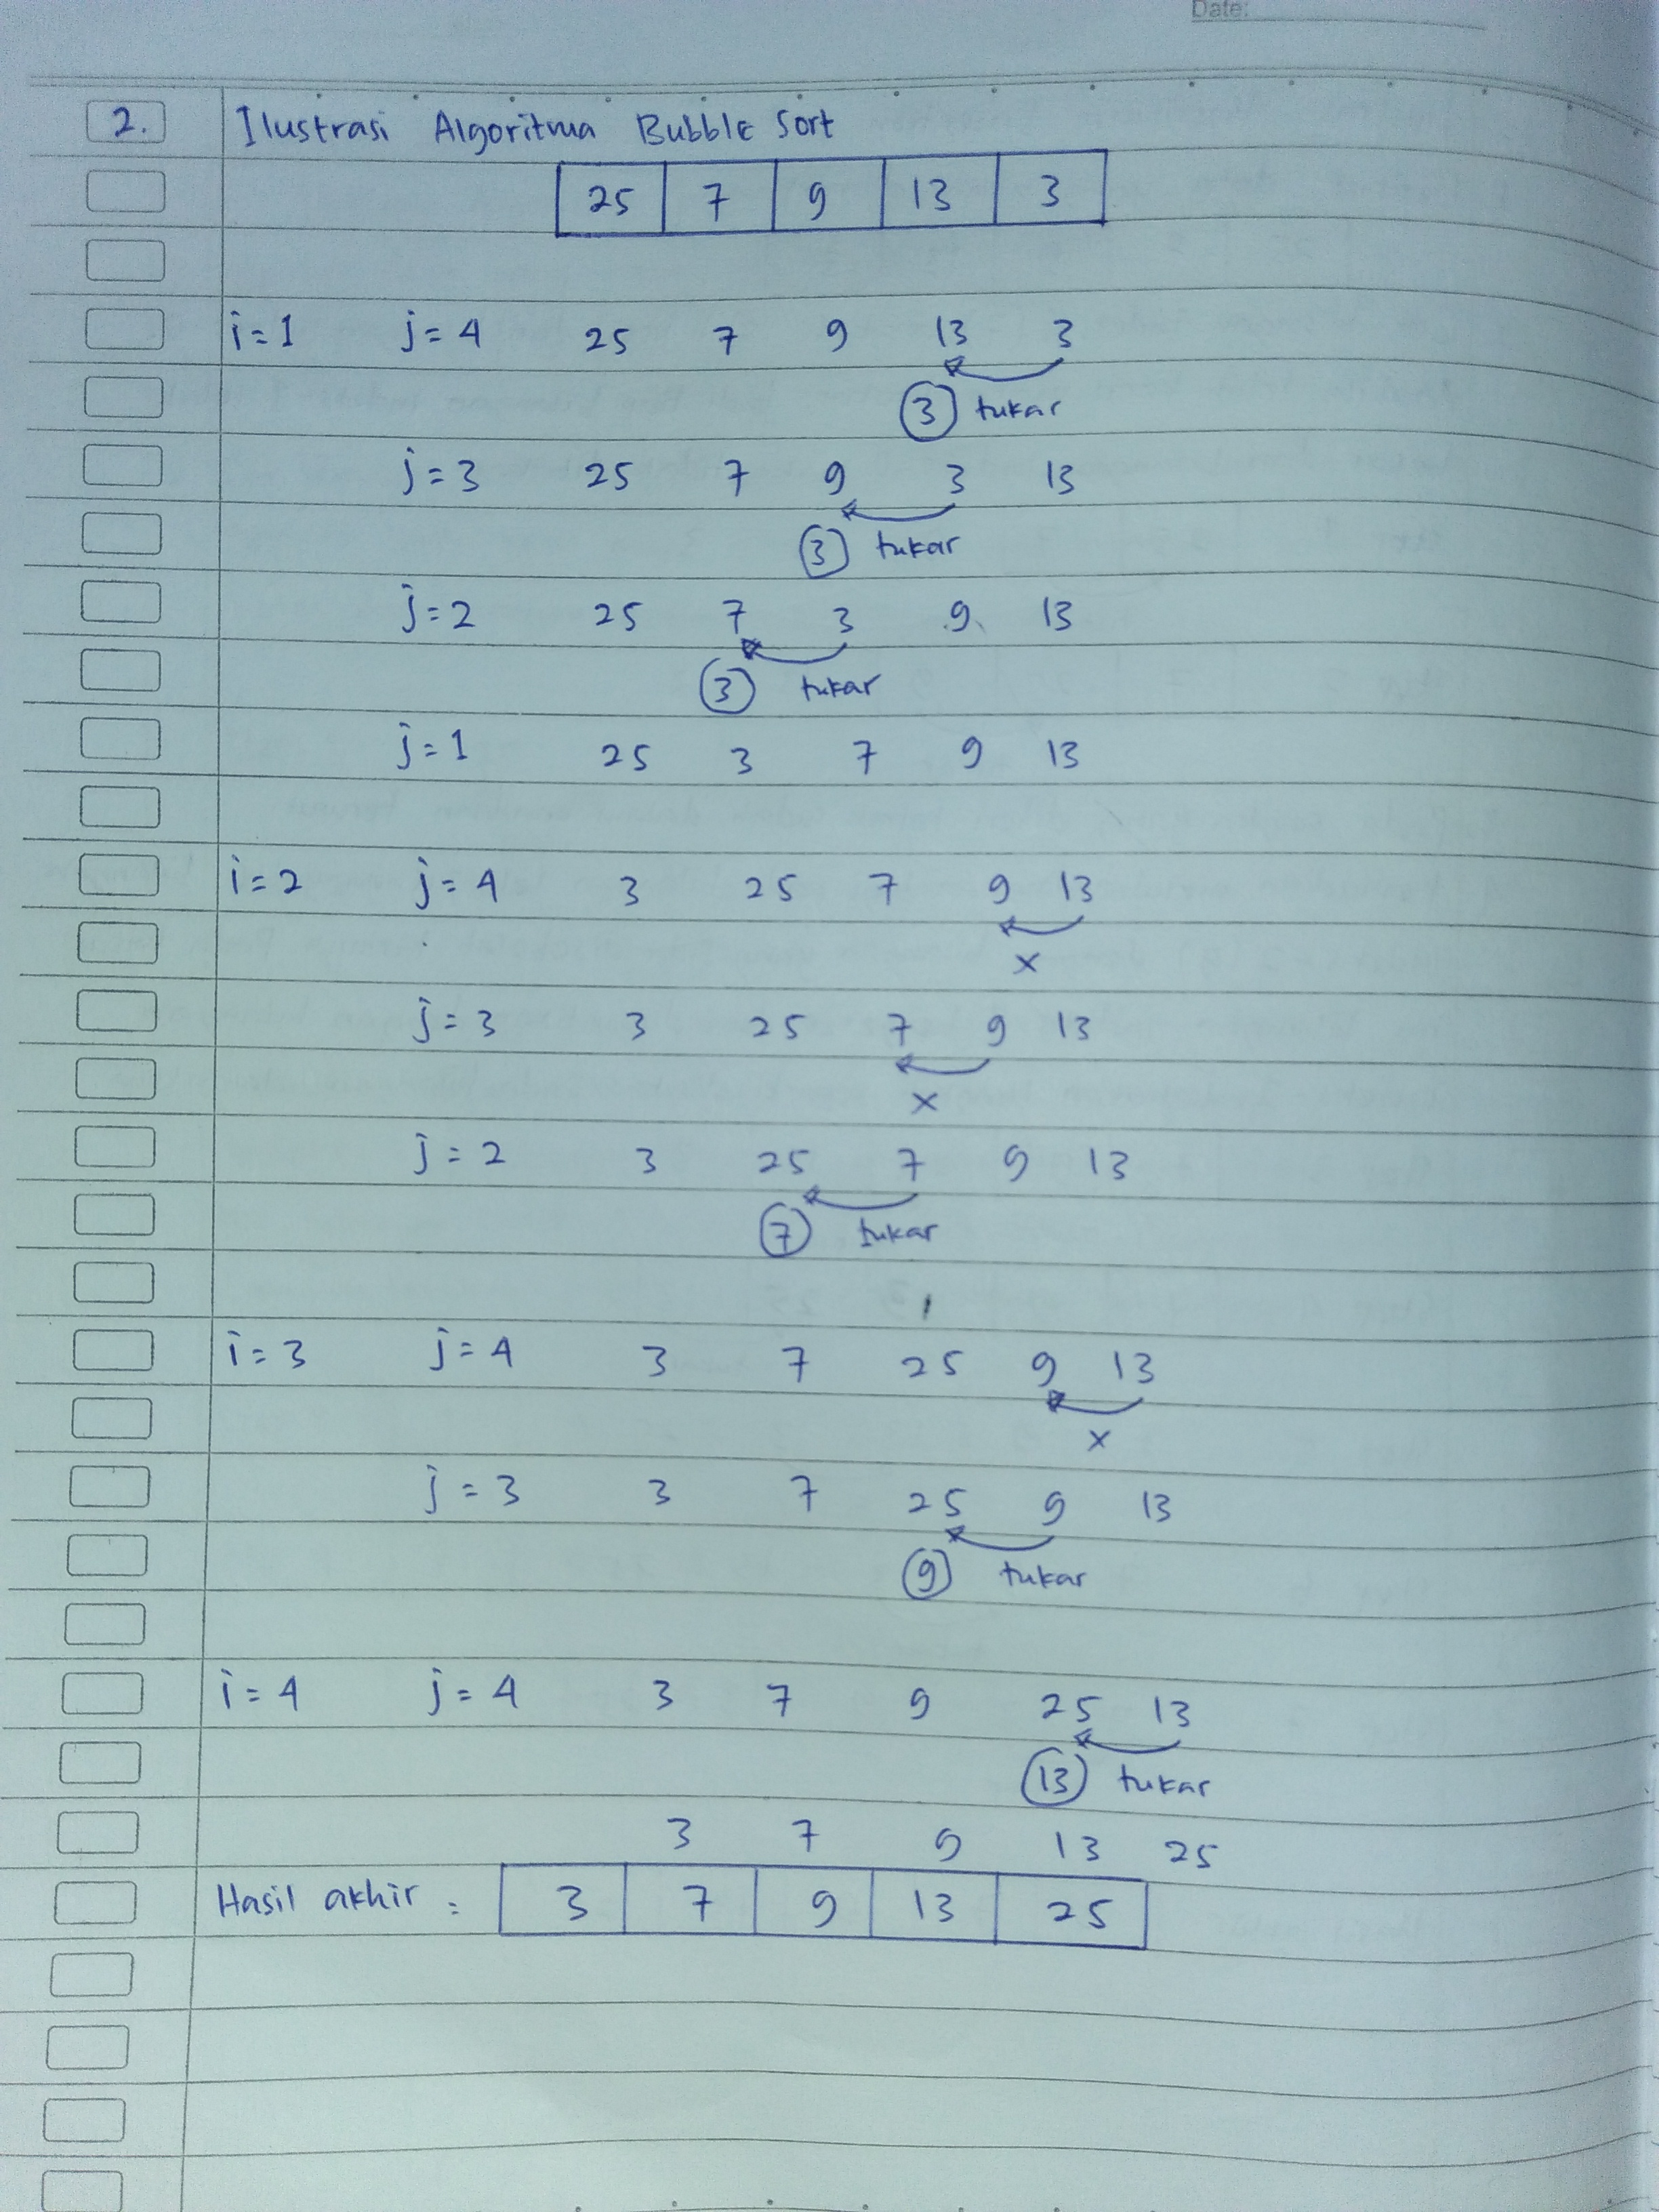 Date:
2. Ilustrasi Algoritma Bubble Sort
25 7 9 13 3
i = 1 j = 4 25 7 9 13 3
3 tukar
j = 3 25 7 9 3 13
3 tukar
j = 2 25 7 3 9 13
3 tukar
j = 1 25 3 7 9 13
i = 2 j = 4 3 25 7 9 13
x
j = 3 3 25 7 9 13
x
j = 2 3 25 7 9 13
7 tukar
i = 3 j = 4 3 7 25 9 13
x
j = 3 3 7 25 9 13
9 tukar
i = 4 j = 4 3 7 9 25 13
13 tukar
3 7 9 13 25
Hasil akhir : 3 7 9 13 25